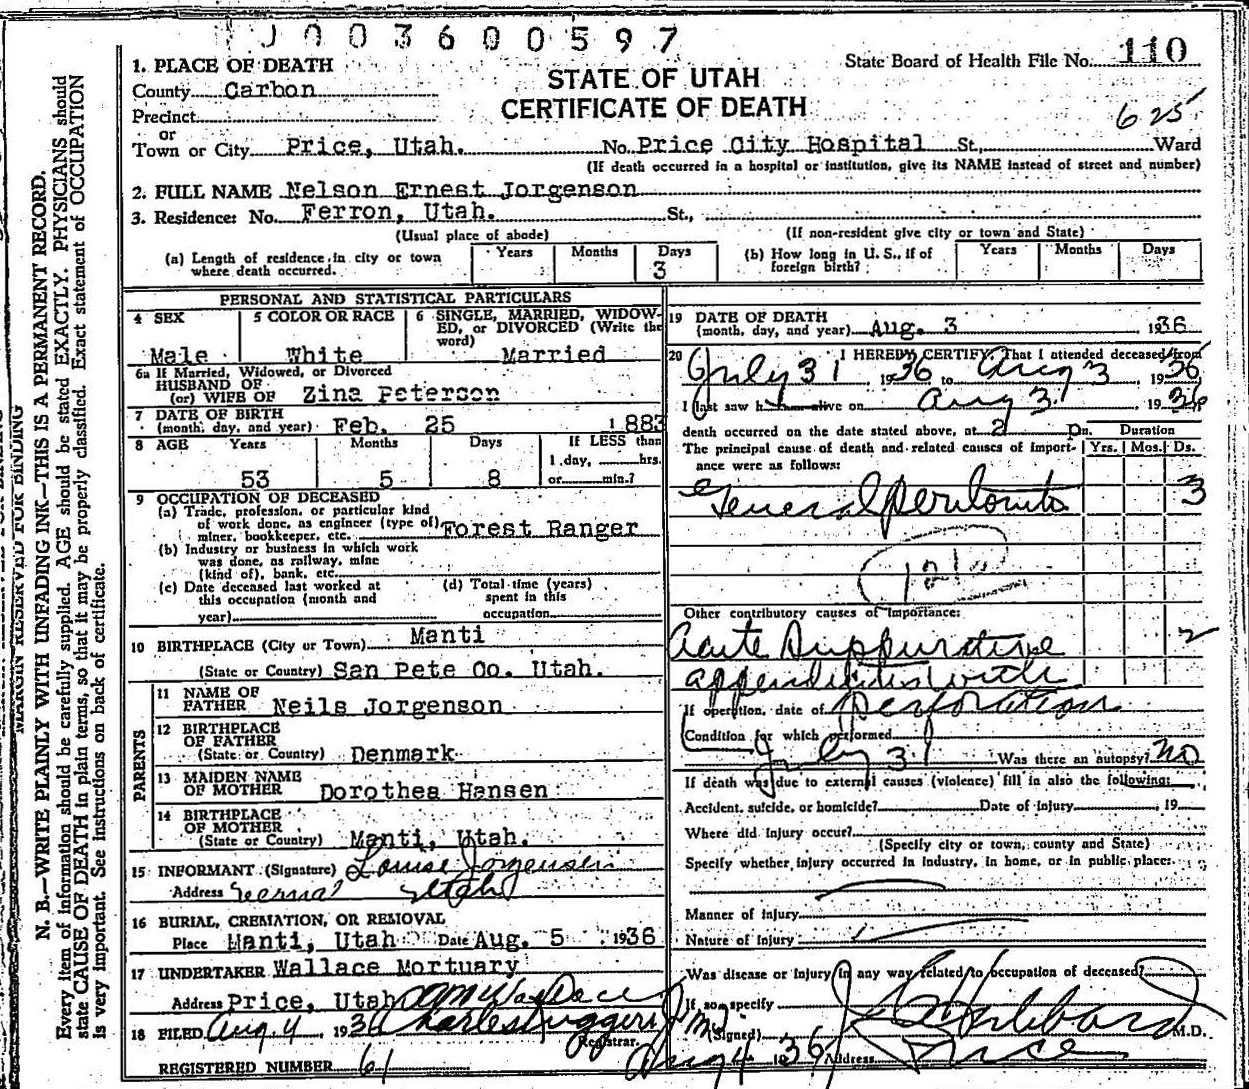 J003600597
State Board of Health File No. 110
1. PLACE OF DEATH
STATE OF UTAH
County Carbon
CERTIFICATE OF DEATH
Precinct
625
or
Town or City Price, Utah. No. Price City Hospital St., Ward
(If death occurred in a hospital or institution, give its NAME instead of street and number)
2. FULL NAME Nelson Ernest Jorgenson
3. Residence: No. Ferron, Utah. St.,
(Usual place of abode) (If non-resident give city or town and State)
(a) Length of residence in city or town where death occurred. Years Months Days 3
(b) How long in U. S., if of foreign birth? Years Months Days
PERSONAL AND STATISTICAL PARTICULARS
4 SEX Male
5 COLOR OR RACE White
6 SINGLE, MARRIED, WIDOWED, or DIVORCED (Write the word) Married
6a If Married, Widowed, or Divorced
HUSBAND OF
(or) WIFE OF Zina Peterson
7 DATE OF BIRTH
(month, day, and year) Feb. 25 1883
8 AGE Years Months Days If LESS than
1 day, hrs.
53 5 8 or min.?
9 OCCUPATION OF DECEASED
(a) Trade, profession, or particular kind
of work done, as engineer (type of)
miner, bookkeeper, etc. Forest Ranger
(b) Industry or business in which work
was done, as railway, mine
(kind of), bank, etc.
(c) Date deceased last worked at
this occupation (month and
year)
(d) Total time (years)
spent in this
occupation
10 BIRTHPLACE (City or Town) Manti
(State or Country) San Pete Co. Utah.
PARENTS
11 NAME OF
FATHER Neils Jorgenson
12 BIRTHPLACE
OF FATHER
(State or Country) Denmark
13 MAIDEN NAME
OF MOTHER Dorothea Hansen
14 BIRTHPLACE
OF MOTHER
(State or Country) Manti, Utah.
15 INFORMANT (Signature) Louise Jorgensen
Address Vernal Utah
16 BURIAL, CREMATION, OR REMOVAL
Place Manti, Utah Date Aug. 5 1936
17 UNDERTAKER Wallace Mortuary
Address Price, Utah
18 FILED Aug. 4, 1936 Charles Ruggeri
Registrar.
REGISTERED NUMBER 61
19 DATE OF DEATH
(month, day, and year) Aug. 3 1936
20 I HEREBY CERTIFY, That I attended deceased from
July 31, 1936 to Aug 3, 1936
I last saw h alive on Aug 3, 1936
death occurred on the date stated above, at 2 p m. Duration
The principal cause of death and related causes of importance were as follows: Yrs. Mos. Ds.
General peritonitis 3
Other contributory causes of importance:
Acute Suppurative 2
appendicitis with
If operation, date of perforation
Condition for which performed
July 31 Was there an autopsy? No
If death was due to external causes (violence) fill in also the following:
Accident, suicide, or homicide? Date of injury , 19
Where did injury occur?
(Specify city or town, county and State)
Specify whether injury occurred in industry, in home, or in public place:
Manner of Injury
Nature of Injury
Was disease or injury in any way related to occupation of deceased?
If so, specify
(Signed) Hubbard M.D.
Aug 4 1936 Address Price
MARGIN RESERVED FOR BINDING
N. B.—WRITE PLAINLY WITH UNFADING INK—THIS IS A PERMANENT RECORD.
Every item of information should be carefully supplied. AGE should be stated EXACTLY. PHYSICIANS should
state CAUSE OF DEATH in plain terms, so that it may be properly classified. Exact statement of OCCUPATION
is very important. See instructions on back of certificate.